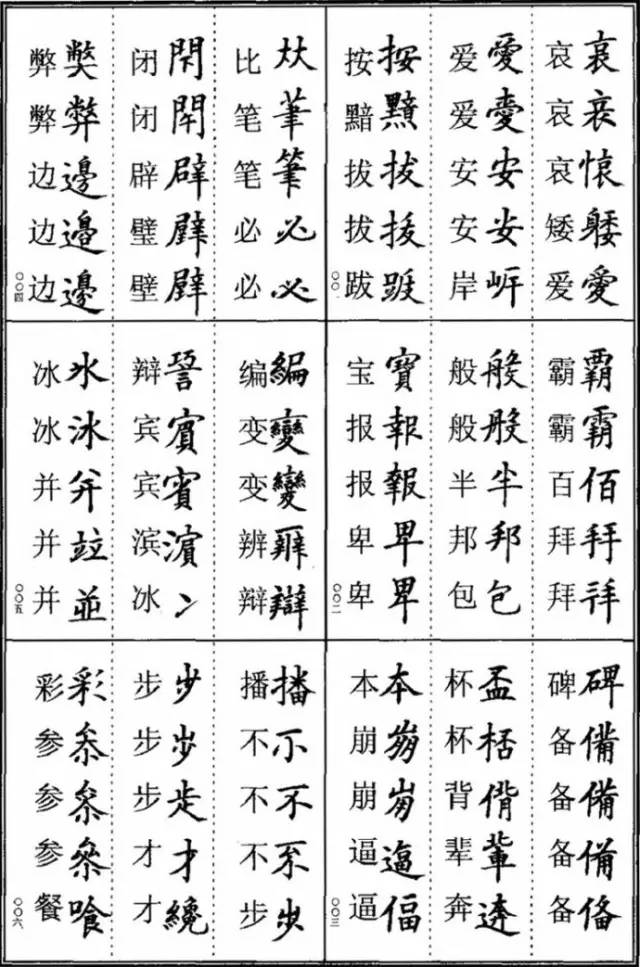 哀 哀
哀 哀
哀
矮 躷
爱 愛
爱 愛
爱 愛
安 安
安 安
岸 岍
按 按
黯 黯
拔 拔
拔 拔
跋 跋
〇〇一
霸 霸
霸 霸
百 佰
拜 拜
拜 拜
般 般
般 般
半 半
邦 邦
包 包
宝 寶
报 報
报 報
卑 卑
卑 卑
〇〇二
碑 碑
备 備
备 備
备 備
备 俻
杯 盃
杯 桮
背 偝
辈 輩
奔 逩
本 本
崩 崩
崩 崩
逼 逼
逼 偪
〇〇三
比 夶
笔 茟
笔 筆
必 必
必 必
闭 閇
闭 閈
辟 辟
璧 璧
壁 壁
弊 獘
弊 弊
边 邊
边 邊
边 邊
〇〇四
编 編
变 變
变 變
辨 辨
辩 辯
辩 䛒
宾 賔
宾 賓
滨 濵
冰 冫
冰 氷
冰 冰
并 并
并 竝
并 並
〇〇五
播 播
不 不
不 不
不
步 步
步 步
步 步
步
才 才
才 纔
彩 彩
参 叅
参 叅
参 叅
餐 喰
〇〇六